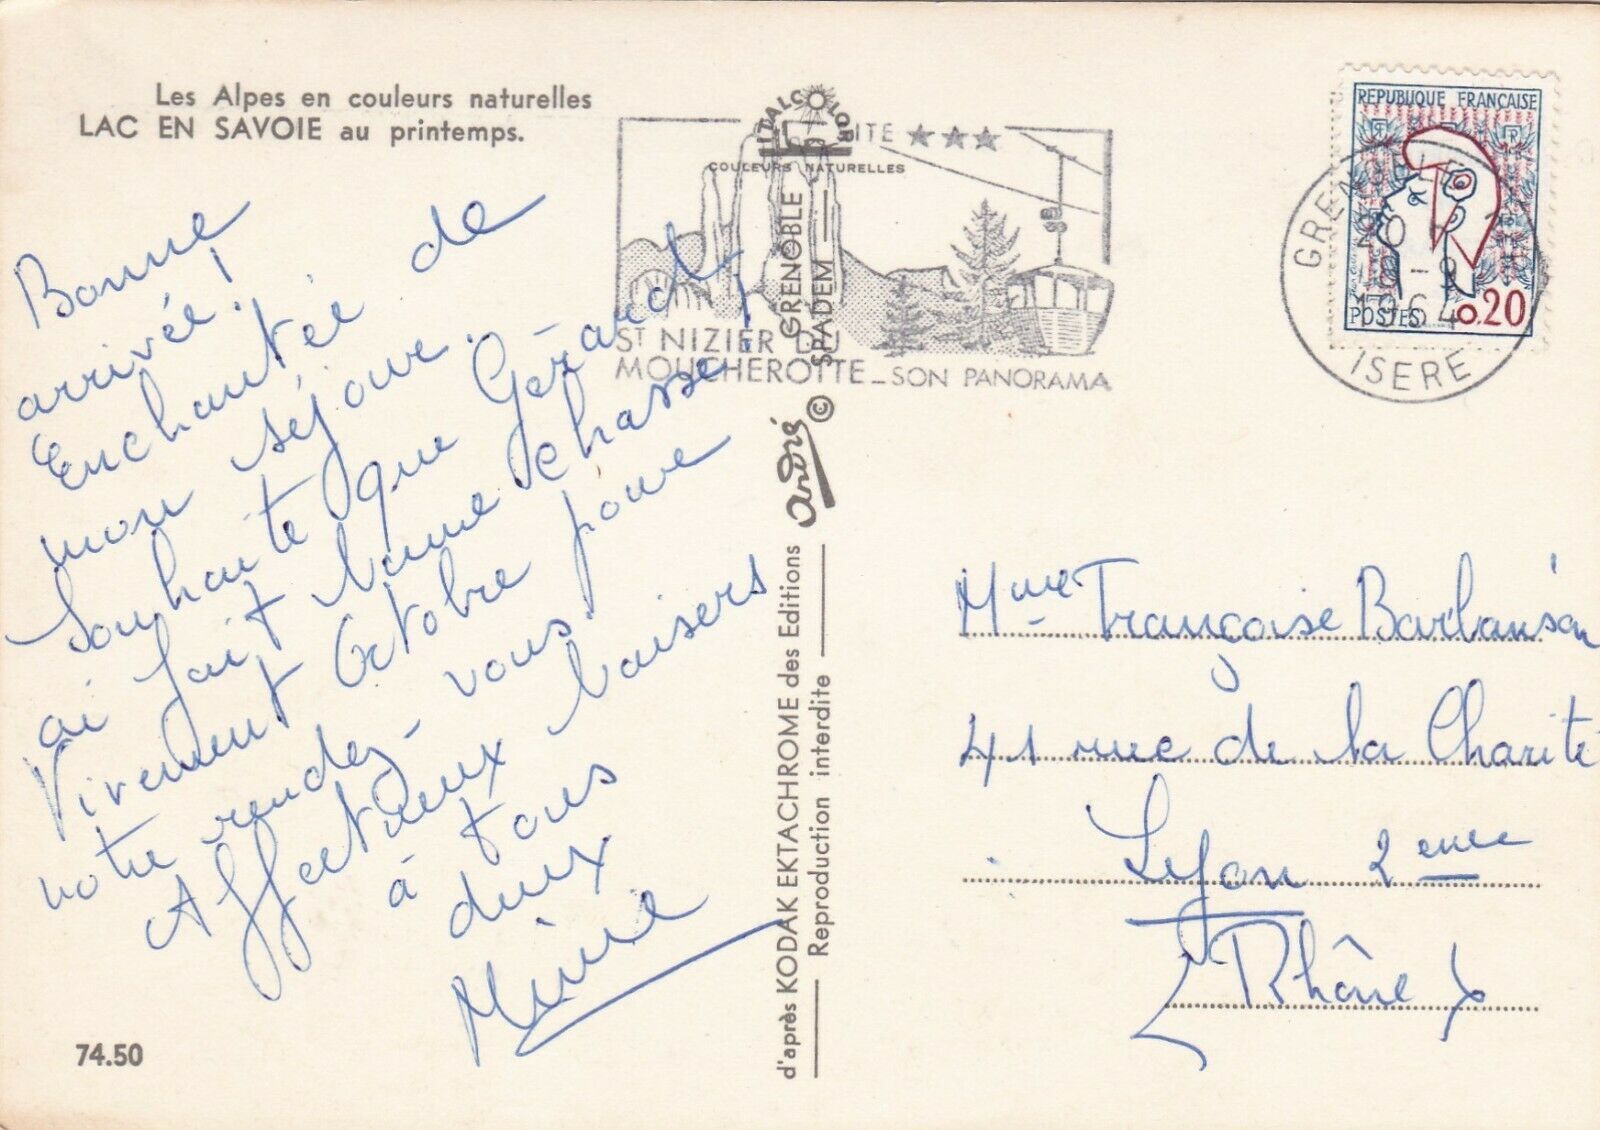 Les Alpes en couleurs naturelles
LAC EN SAVOIE au printemps.
Bonne
arrivée !
Enchantée de
mon séjour.
Souhaite que Gérard
ai fait bonne chasse !
Vivement Octobre pour
notre rendez-vous.
Affectueux baisers
à tous
deux
Mine
74.50
ITALCOLOR
COULEURS NATURELLES
GRENOBLE
SPADEM
André ©
d'après KODAK EKTACHROME des Editions
Reproduction interdite
SITE ★★★
ST NIZIER DU
MOUCHEROTTE_SON PANORAMA
GRENOBLE
20 H
8 -9
1964
ISERE
REPUBLIQUE FRANÇAISE
POSTES 0.20
Mme Françoise Barbansón
41 rue de la Charité
Lyon 2eme
Rhône